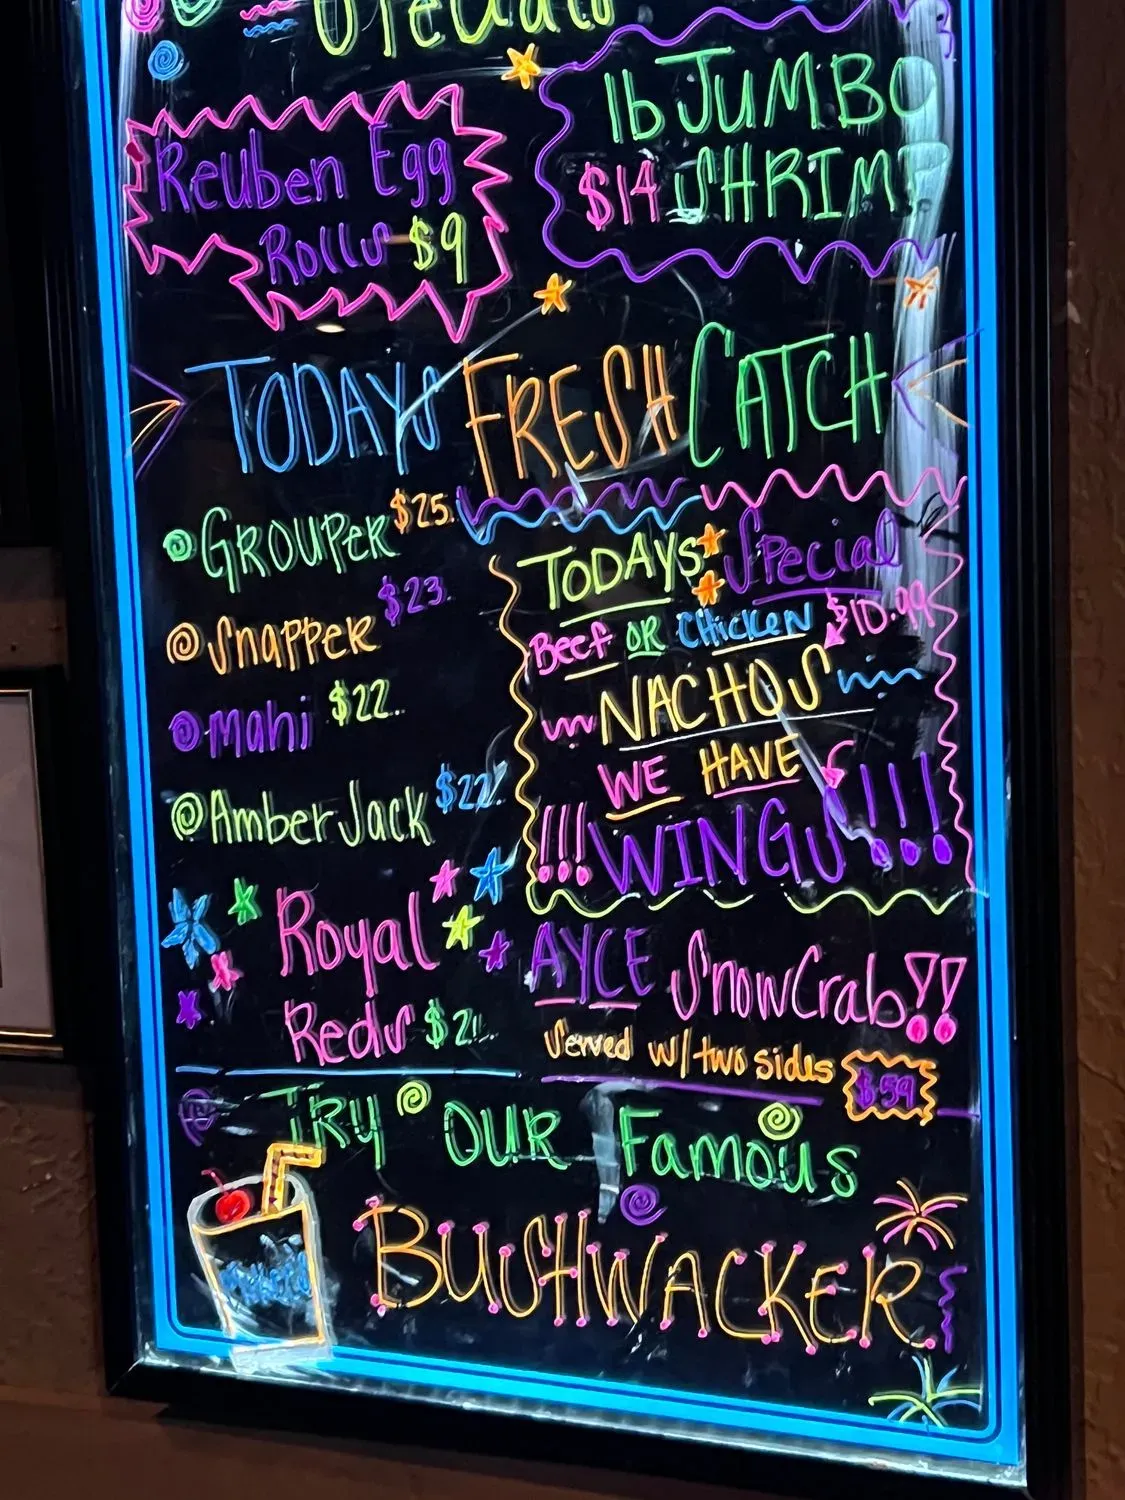 1lb JUMBO
$14 SHRIMP
Reuben Egg
Rolls $9
TODAYS FRESH CATCH
GROUPER $25.
Snapper $23.
Mahi $22..
Amber Jack $22.
Royal
Reds
TODAYS Special
Beef OR CHicKEN $10.99
NACHOS
WE HAVE
!!! WINGS !!!
AYCE SnowCrab!!
Served w/ two sides $59
TRY OUR Famous
BUSHWACKER